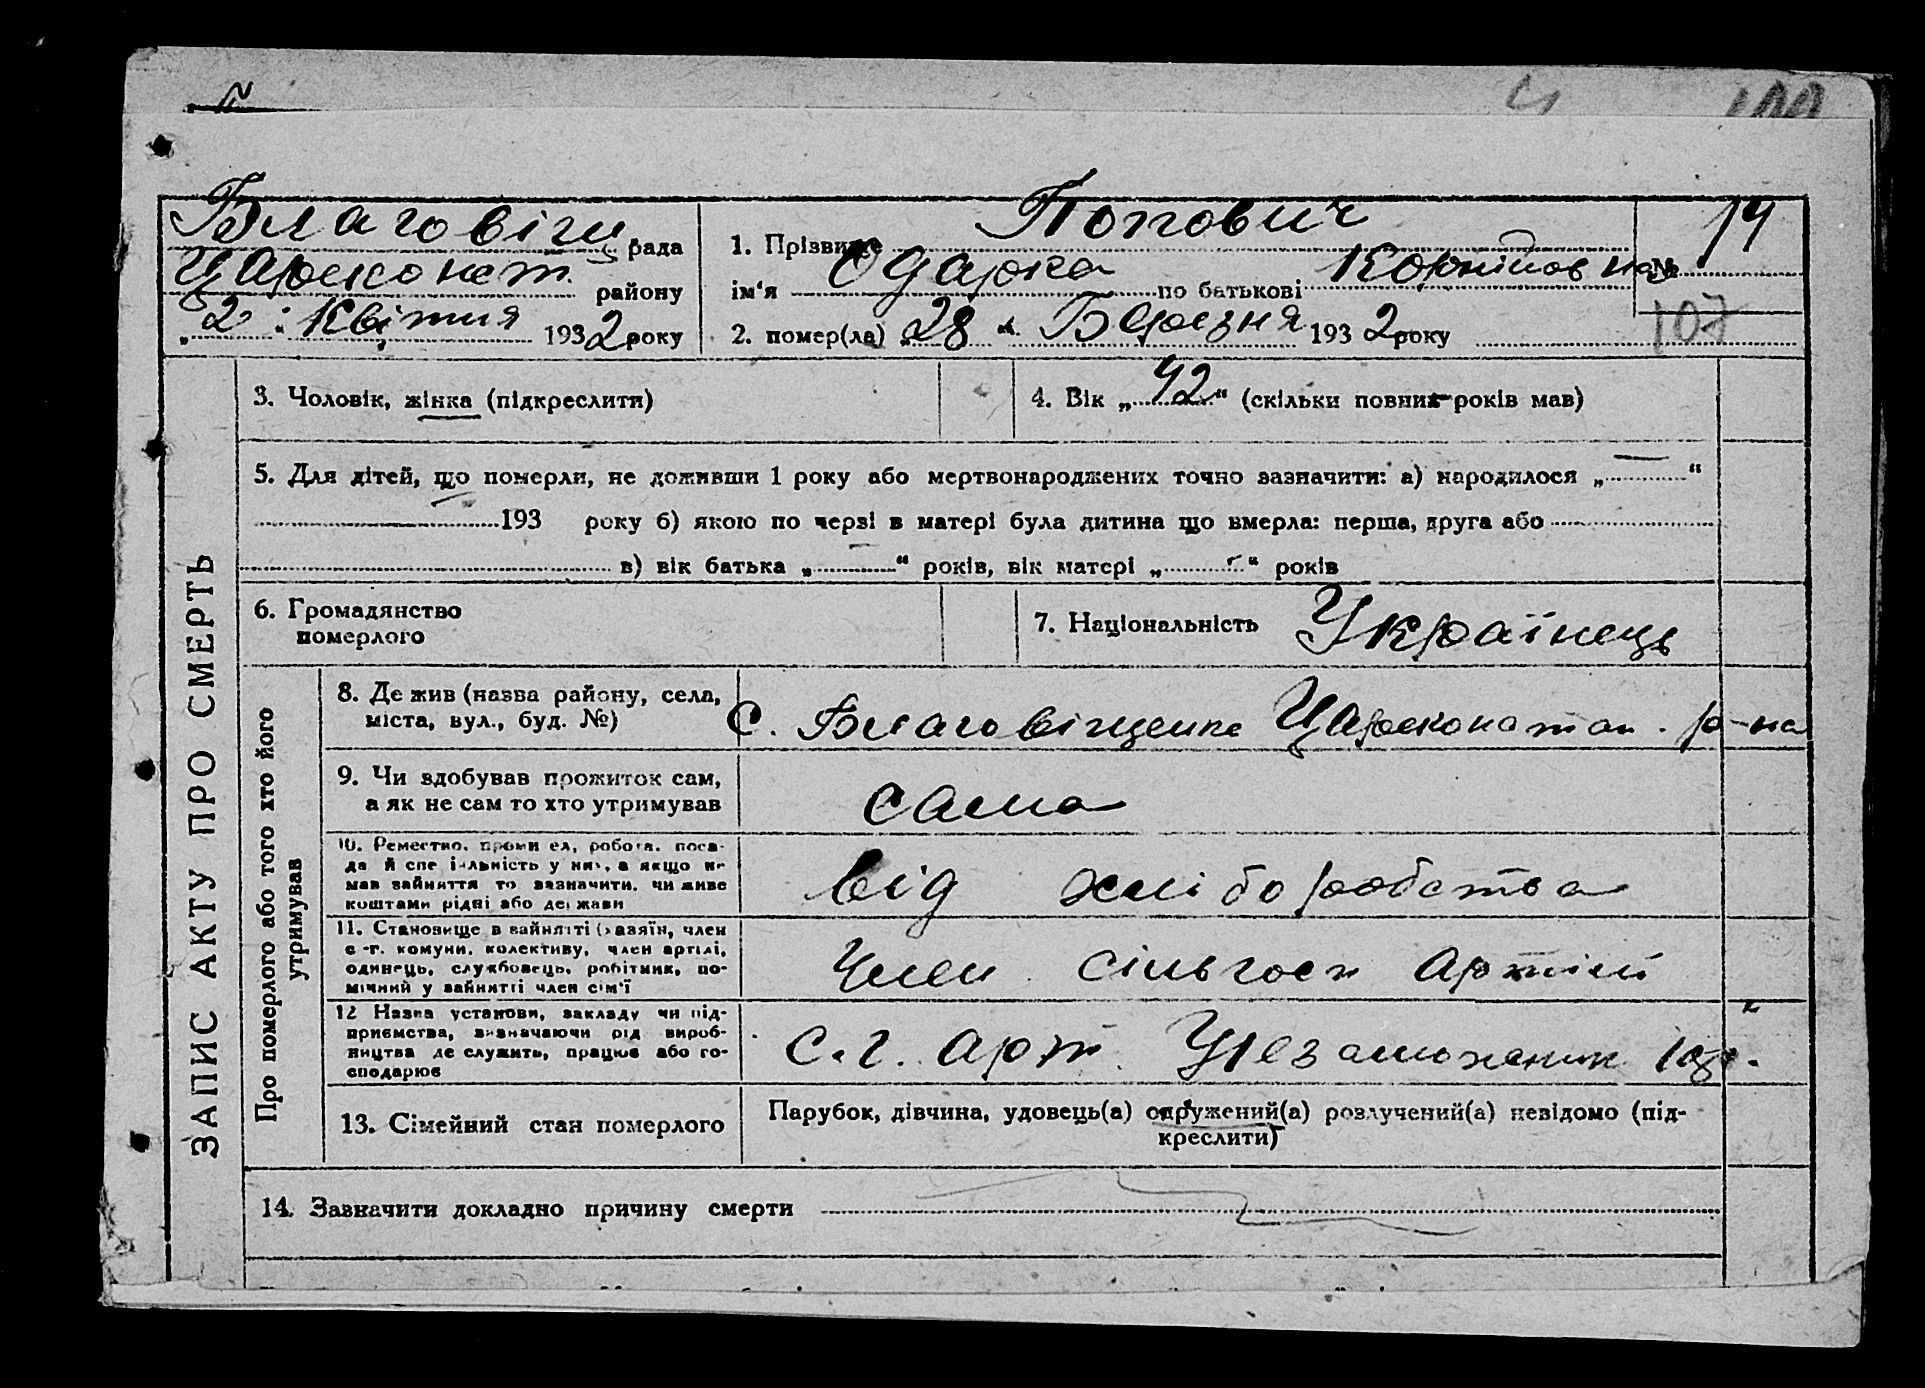 Благовіщ. рада
Царекокат. району
„ 2 " Квітня 1932 року
1. Прізвище Попович
ім'я Одарка по батькові Корнііовна
2. помер(ла) „ 28 " Березня 1932 року
19
107
ЗАПИС АКТУ ПРО СМЕРТЬ
3. Чоловік, жінка (підкреслити)
4. Вік „ 42 " (скільки повних років мав)
5. Для дітей, що померли, не доживши 1 року або мертвонароджених точно зазначити: а) народилося „ — "
193 року б) якою по черзі в матері була дитина що вмерла: перша, друга або
в) вік батька „ " років, вік матері „ " років
6. Громадянство
померлого
7. Національність Українець
Про померлого або того хто його
утримував
8. Де жив (назва району, села,
міста, вул., буд. №)
С. Благовіщенка р-на
9. Чи здобував прожиток сам,
а як не сам то хто утримував
сама
10. Ремество, промисел, робота, поса-
да й спеціяльність у них, а якщо не
мав зайняття то зазначити, чи живе
коштами рідні або держави
від хліборобства
11. Становище в зайнятті (хазяїн, член
с-г. комуни, колективу, член артілі,
одинець, службовець, робітник, по-
мічний у зайнятті член сім'ї
Член сільгосп артілі
12 Назва установи, закладу чи під-
приємства, визначаючи рід вироб-
ництва де служить, працює або го-
сподарює
С.г. арт. Незаможник
13. Сімейний стан померлого
Парубок, дівчина, удовець(а) одружений(а) розлучений(а) невідомо (під-
креслити)
14. Зазначити докладно причину смерти